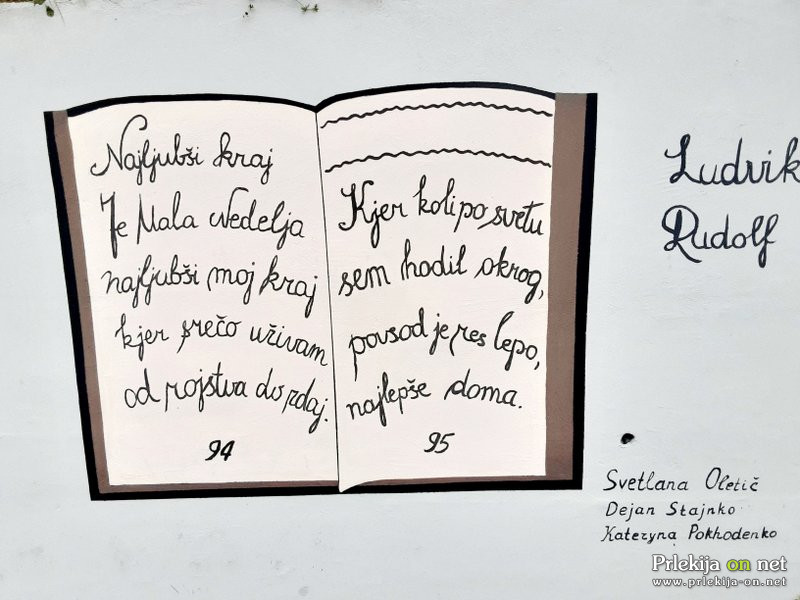 Najljubši kraj
Je Mala Nedelja
najljubši moj kraj
kjer srečo uživam
od rojstva do zdaj.
94
Kjer koli po svetu
sem hodil okrog,
povsod je res lepo,
najlepše doma.
95
Ludvik
Rudolf
Svetlana Oletič
Dejan Stajnko
Kateryna Pokhodenko
Prlekija on net
www.prlekija-on.net